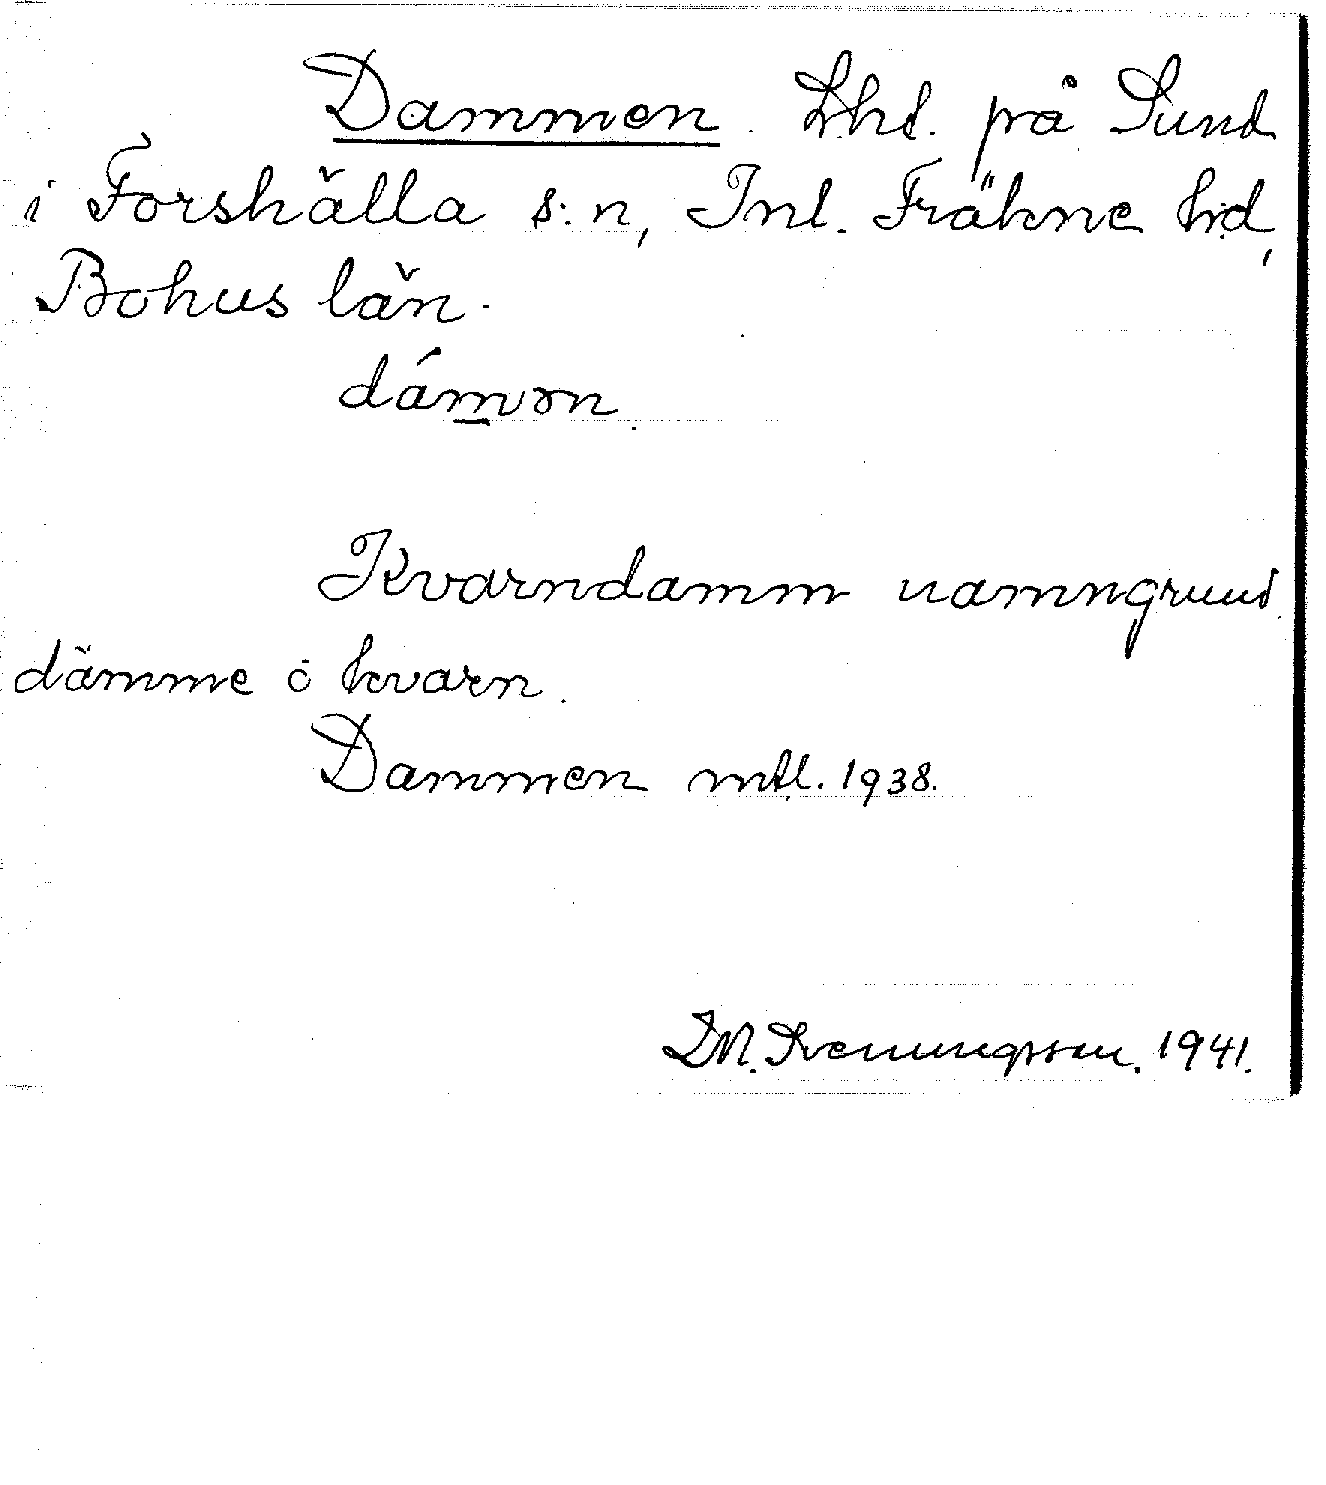 Dammen. Lhl. på Sund
i Forshälla s:n, Inl. Fräkne hd,
Bohus län.
dámən.
Kvarndamm namngrund.
dämme o kvarn.
Dammen mtl. 1938.
1941.